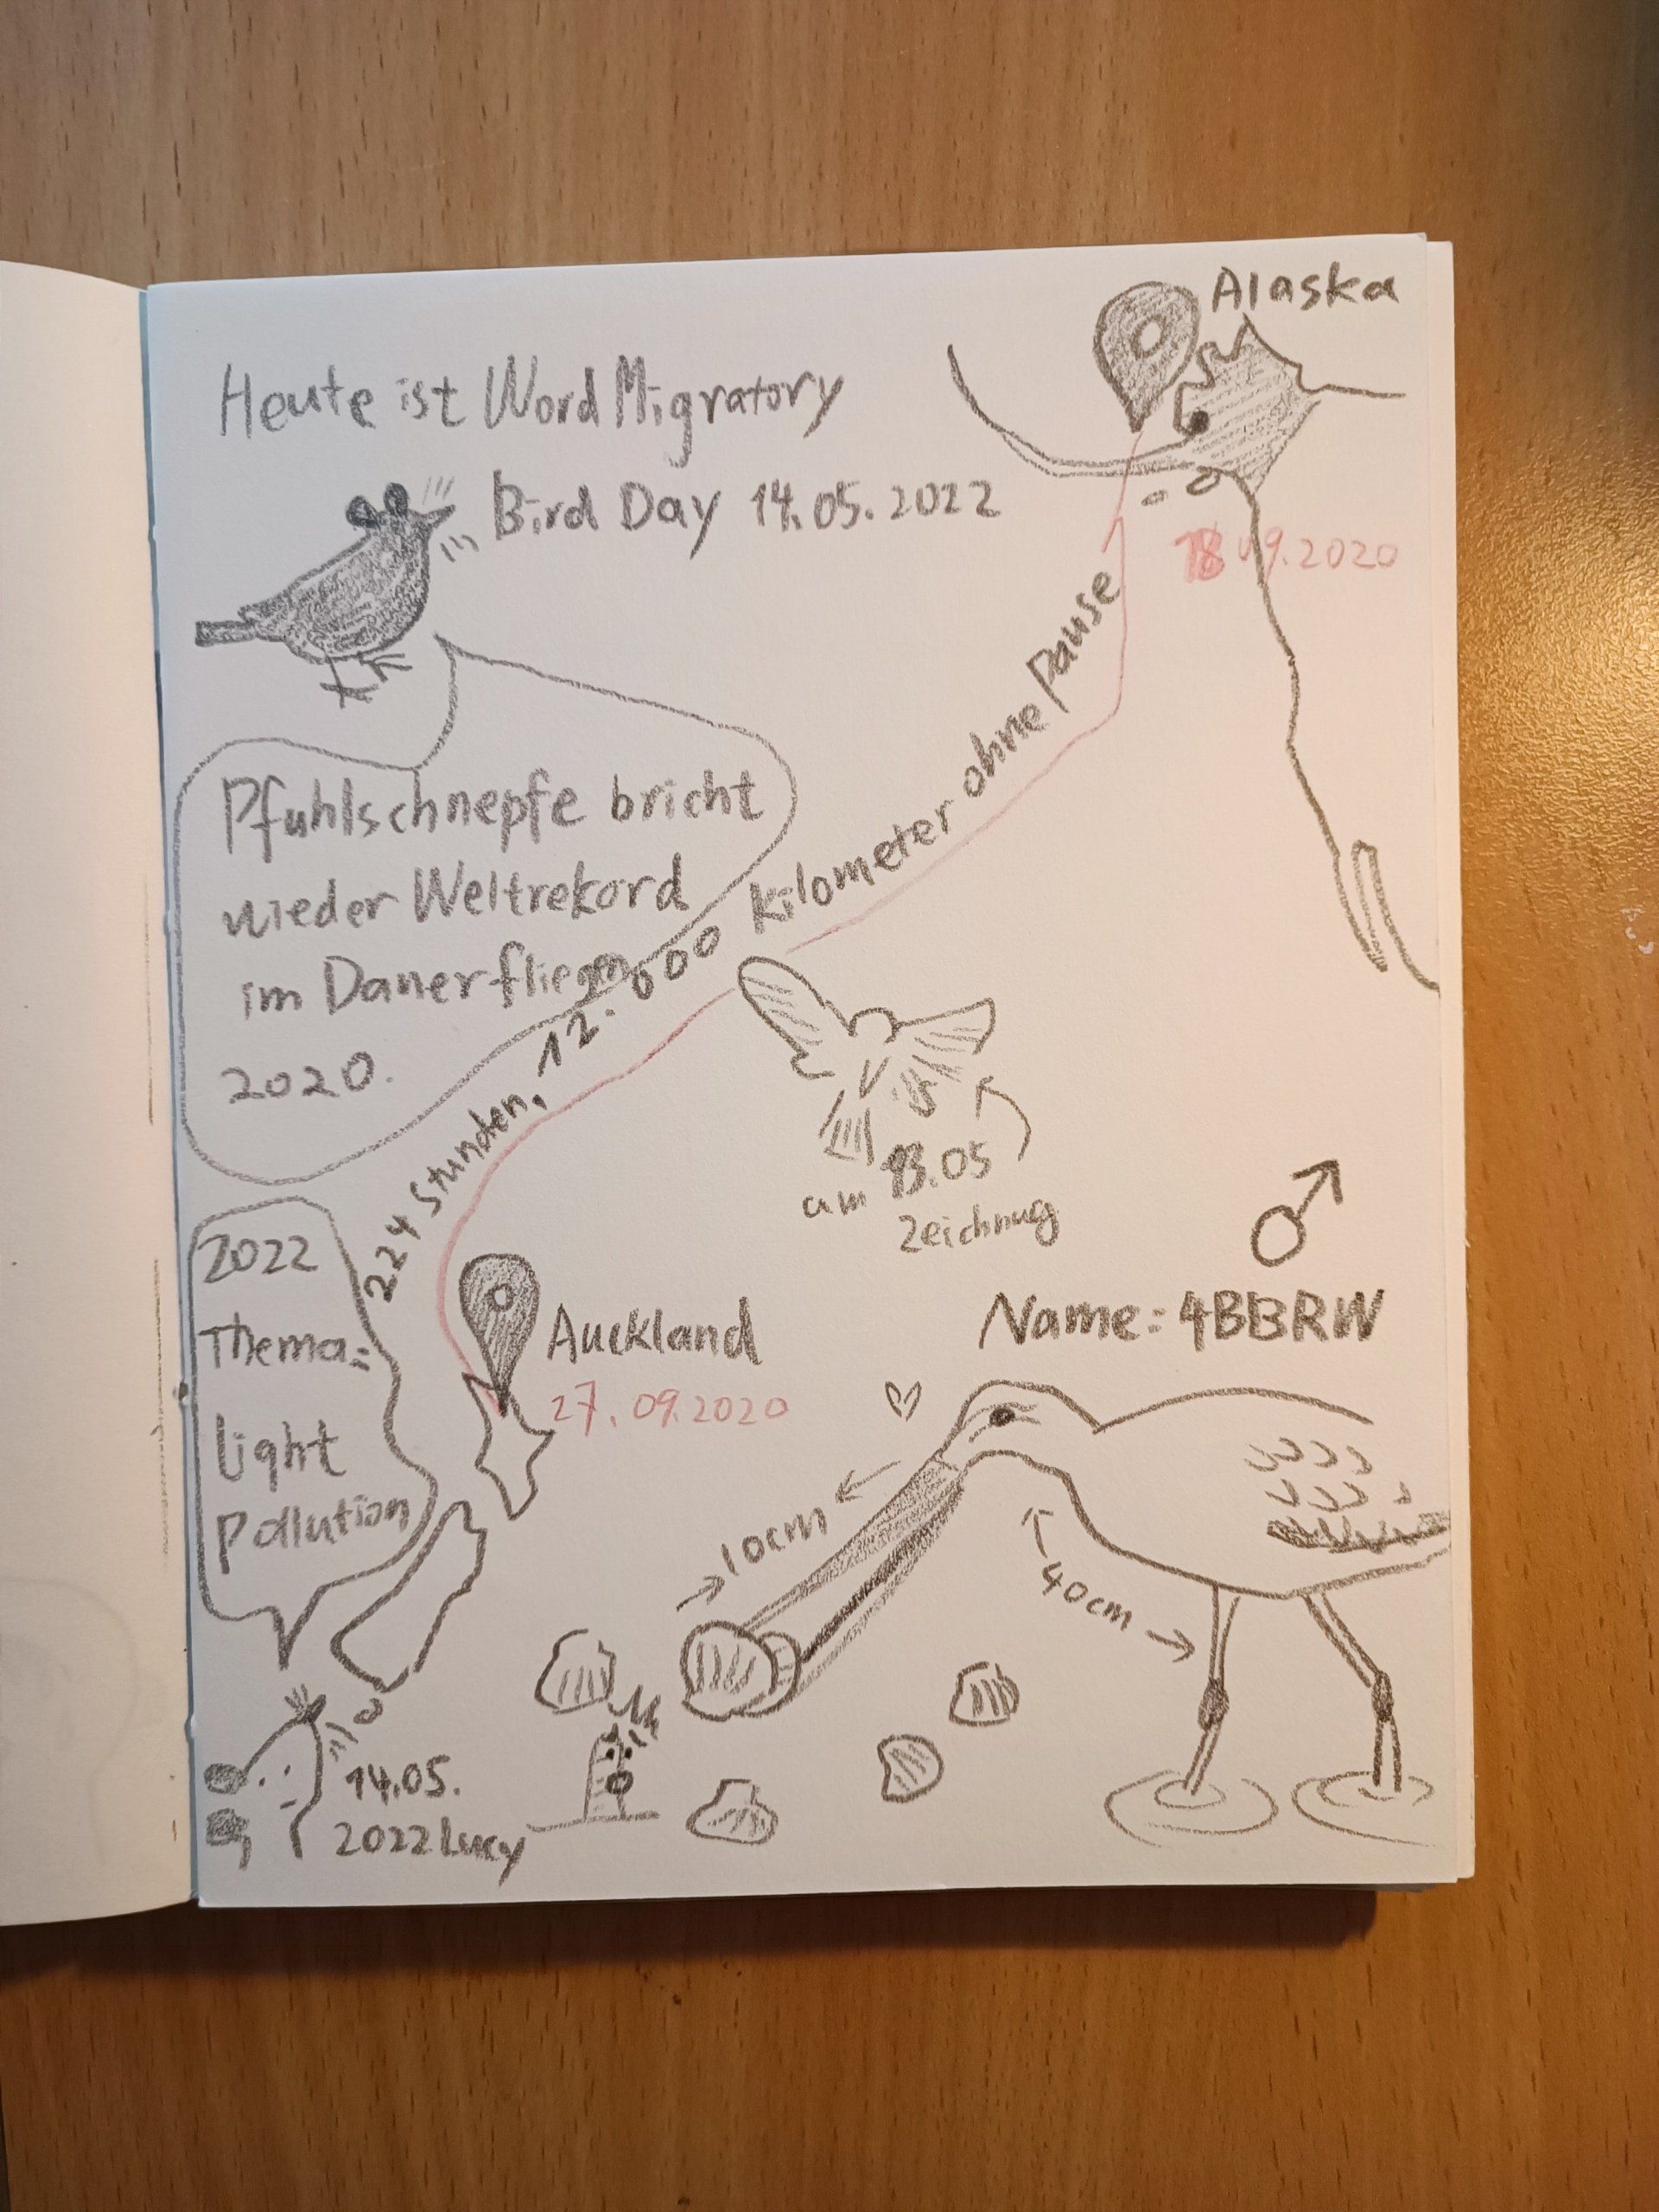 Alaska
Heute ist Word Migratory
Bird Day 14.05.2022
18.09.2020
Pfuhlschnepfe bricht
wieder Weltrekord
im Dauerfliegen
2020.
224 Stunden, 12.000 kilometer ohne Pause
am 13.05
Zeichnung
2022
Thema:
Light
Pollution
Auckland
27.09.2020
Name: 4BBRW
10cm
40cm
14.05.
2022 Lucy